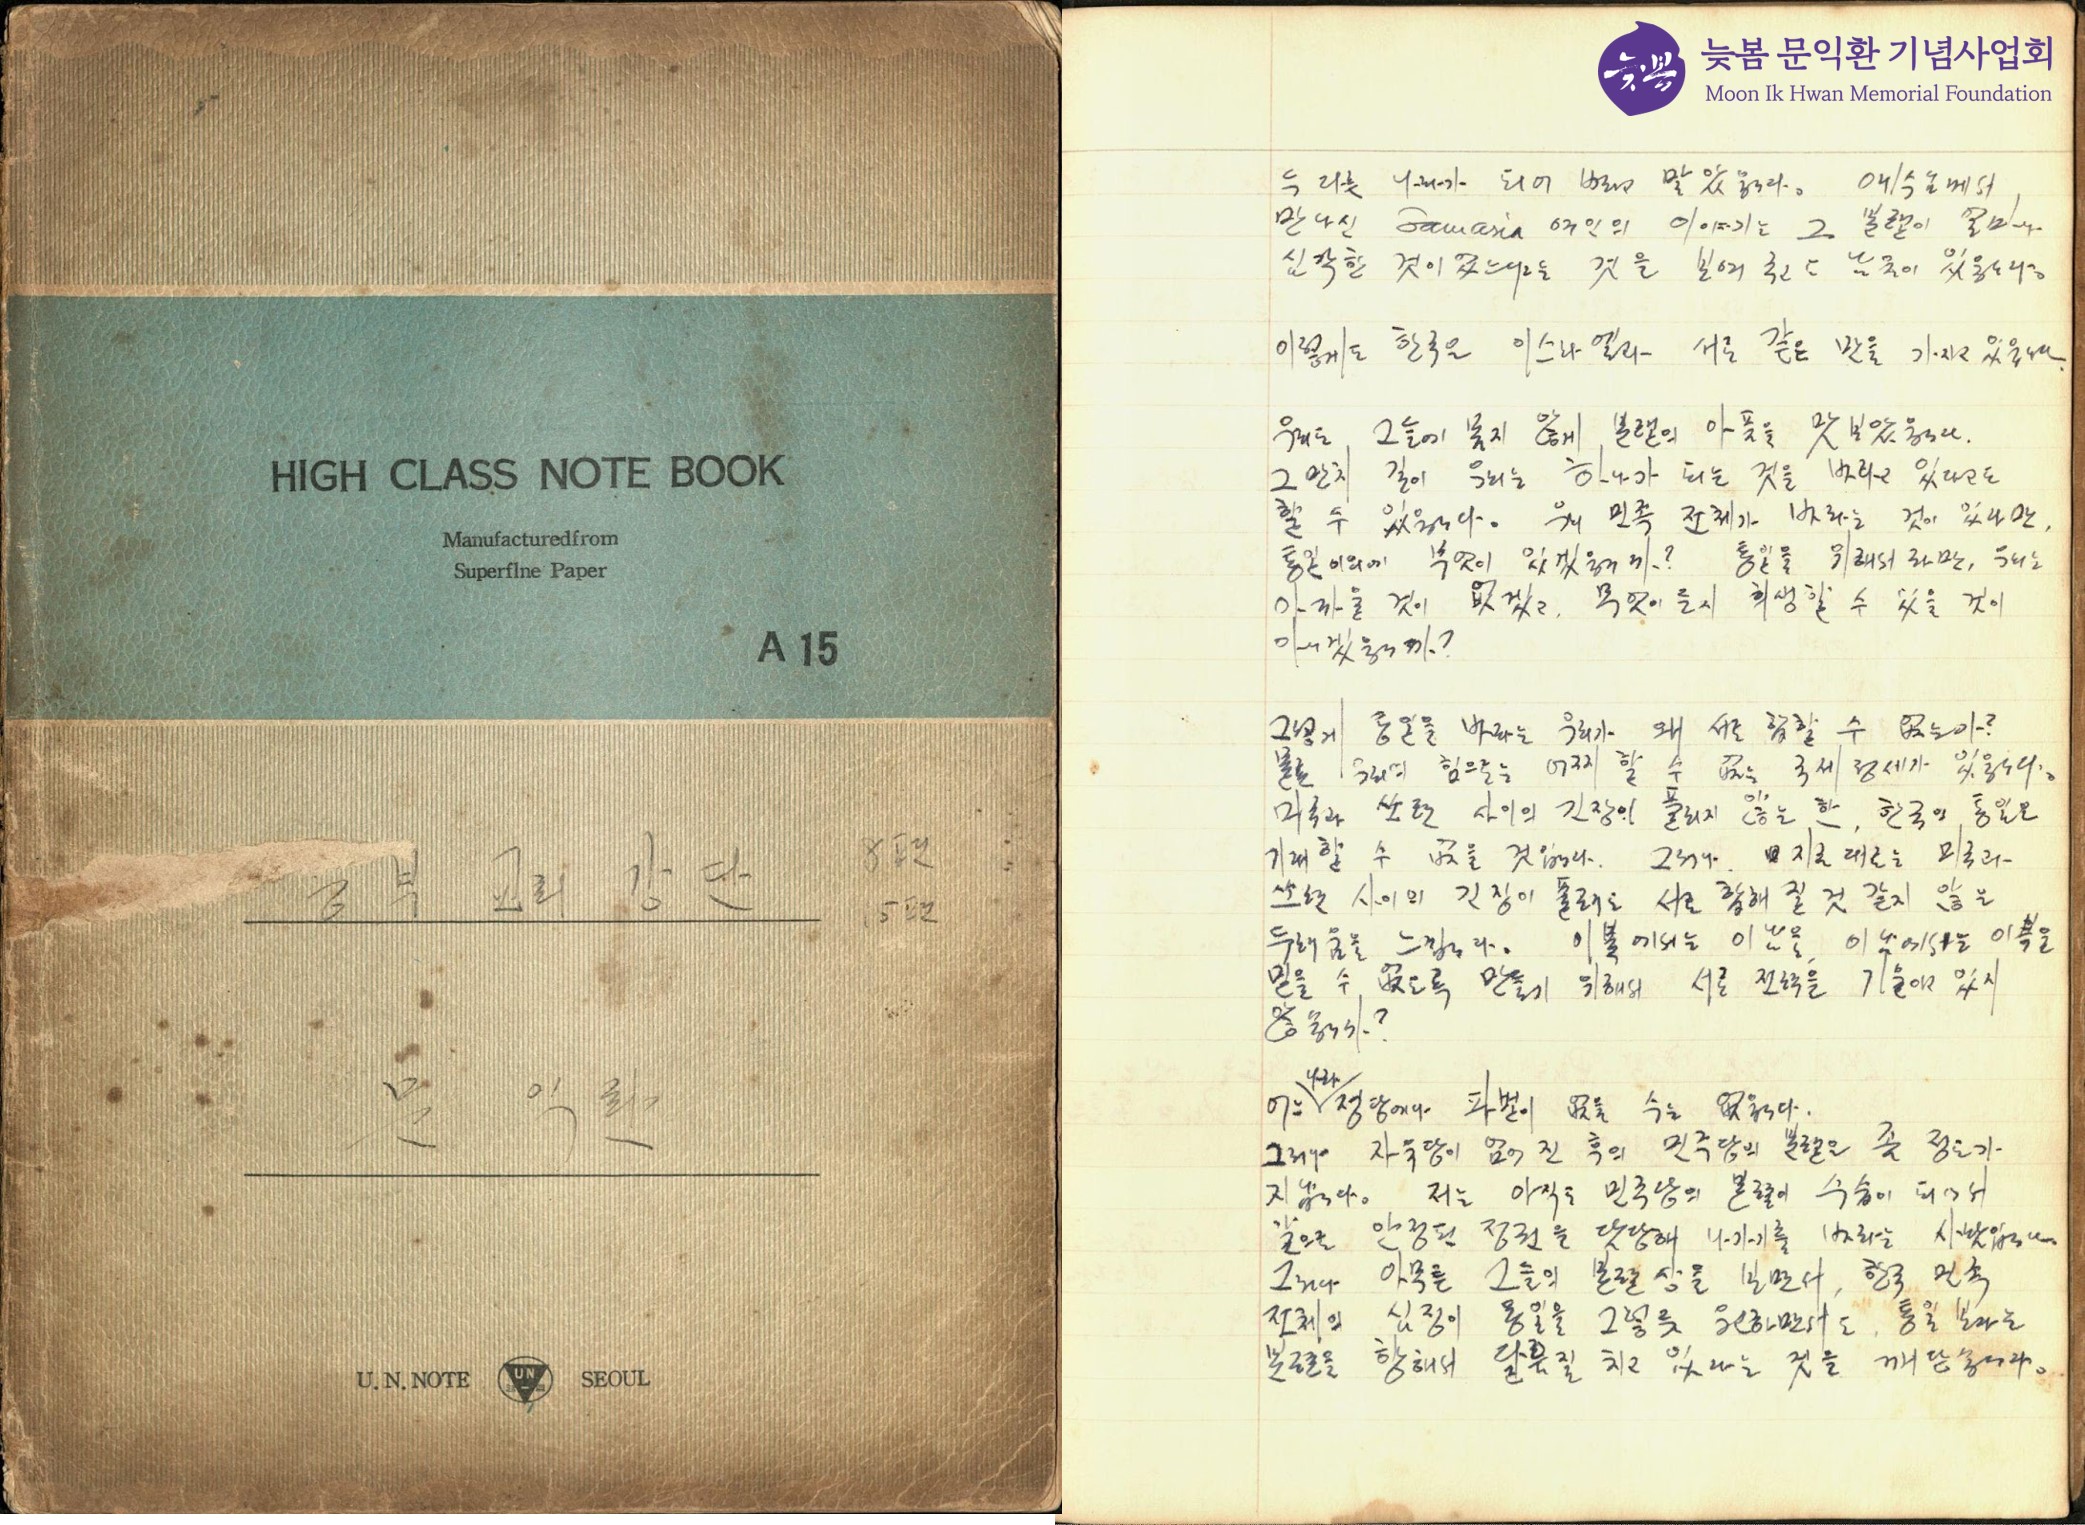 HIGH CLASS NOTE BOOK
Manufacturedfrom
Superfine Paper
A 15
중부 교회 강단
8 표연
5 표연
문 익환
U. N. NOTE UN SEOUL
늦봄 문익환 기념사업회
Moon Ik Hwan Memorial Foundation
두 다른 나라가 되어 버리고 말았읍니다. 예수님께서
만나신 Samaria 여인의 이야기는 그 분렬이 얼마나
심각한 것이었느냐는 것을 보여 주고도 남음이 있읍니다.
이렇게도 한국은 이스라엘과 서로 같은 반을 가지고 있읍니다.
우리도 그들에 못지 않게 분렬의 아픔을 맛보았읍니다.
그만치 깊이 우리는 하나가 되는 것을 바라고 있다고도
할 수 있읍니다. 우리 민족 전체가 바라는 것이 있다면,
통일 이외에 무엇이 있겠읍니까? 통일을 위해서라면, 우리는
아까울 것이 없겠고, 무엇이든지 희생할 수 있을 것이
아니겠읍니까?
그렇게 통일을 바라는 우리가 왜 서로 합할 수 없는가?
물론 우리의 힘으로는 어찌 할 수 없는 국제 정세가 있읍니다.
미국과 쏘련 사이의 긴장이 풀리지 않는 한, 한국의 통일은
기대할 수 없을 것입니다. 그러나 지금대로는 미국과
쏘련 사이의 긴장이 풀려도 서로 합해 질 것 같지 않은
두려움을 느낍니다. 이북에서는 이남을, 이남에서는 이북을
믿을 수 없도록 만들기 위해서 서로 전력을 기울이고 있지
않읍니까?
어느 나라 정당에나 파벌이 없을 수는 없읍니다.
그러나 자유당이 없어진 후의 민주당의 분렬은 좀 정도가
지납니다. 저는 아직도 민주당의 분렬이 수습이 되어서
앞으로 안정된 정권을 담당해 나가기를 바라는 사람입니다.
그러나 아무튼 그들의 분렬상을 보면서, 한국 민족
전체의 심정이 통일을 그렇듯 원하면서도, 통일보다는
분렬을 향해서 달음질 치고 있다는 것을 깨닫습니다.